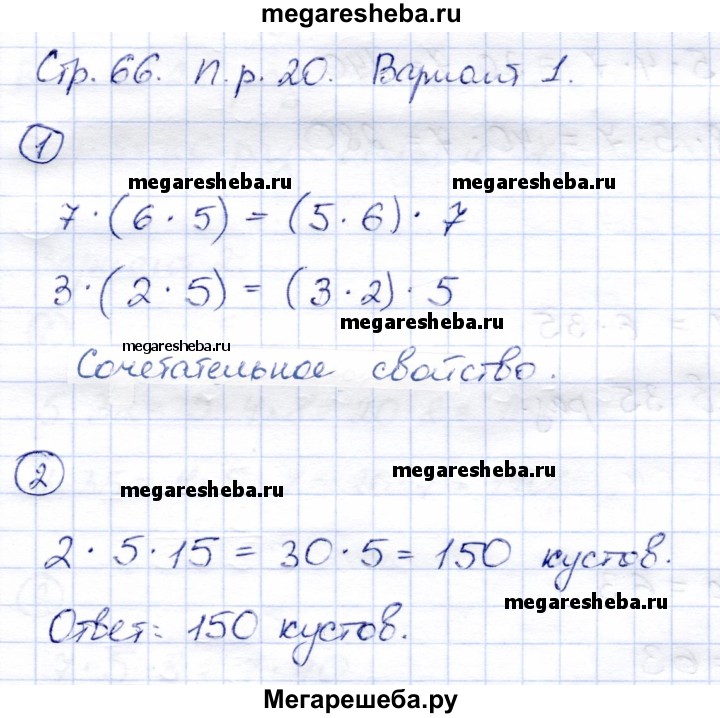 megaresheba.ru
Стр. 66. п. р. 20. Вариант 1.
1
megaresheba.ru megaresheba.ru
7 · (6 · 5) = (5 · 6) · 7
3 · (2 · 5) = (3 · 2) · 5
megaresheba.ru
megaresheba.ru
Сочетательное свойство.
2
megaresheba.ru
megaresheba.ru
2 · 5 · 15 = 30 · 5 = 150 кустов.
megaresheba.ru
Ответ: 150 кустов.
Мегарешеба.ру